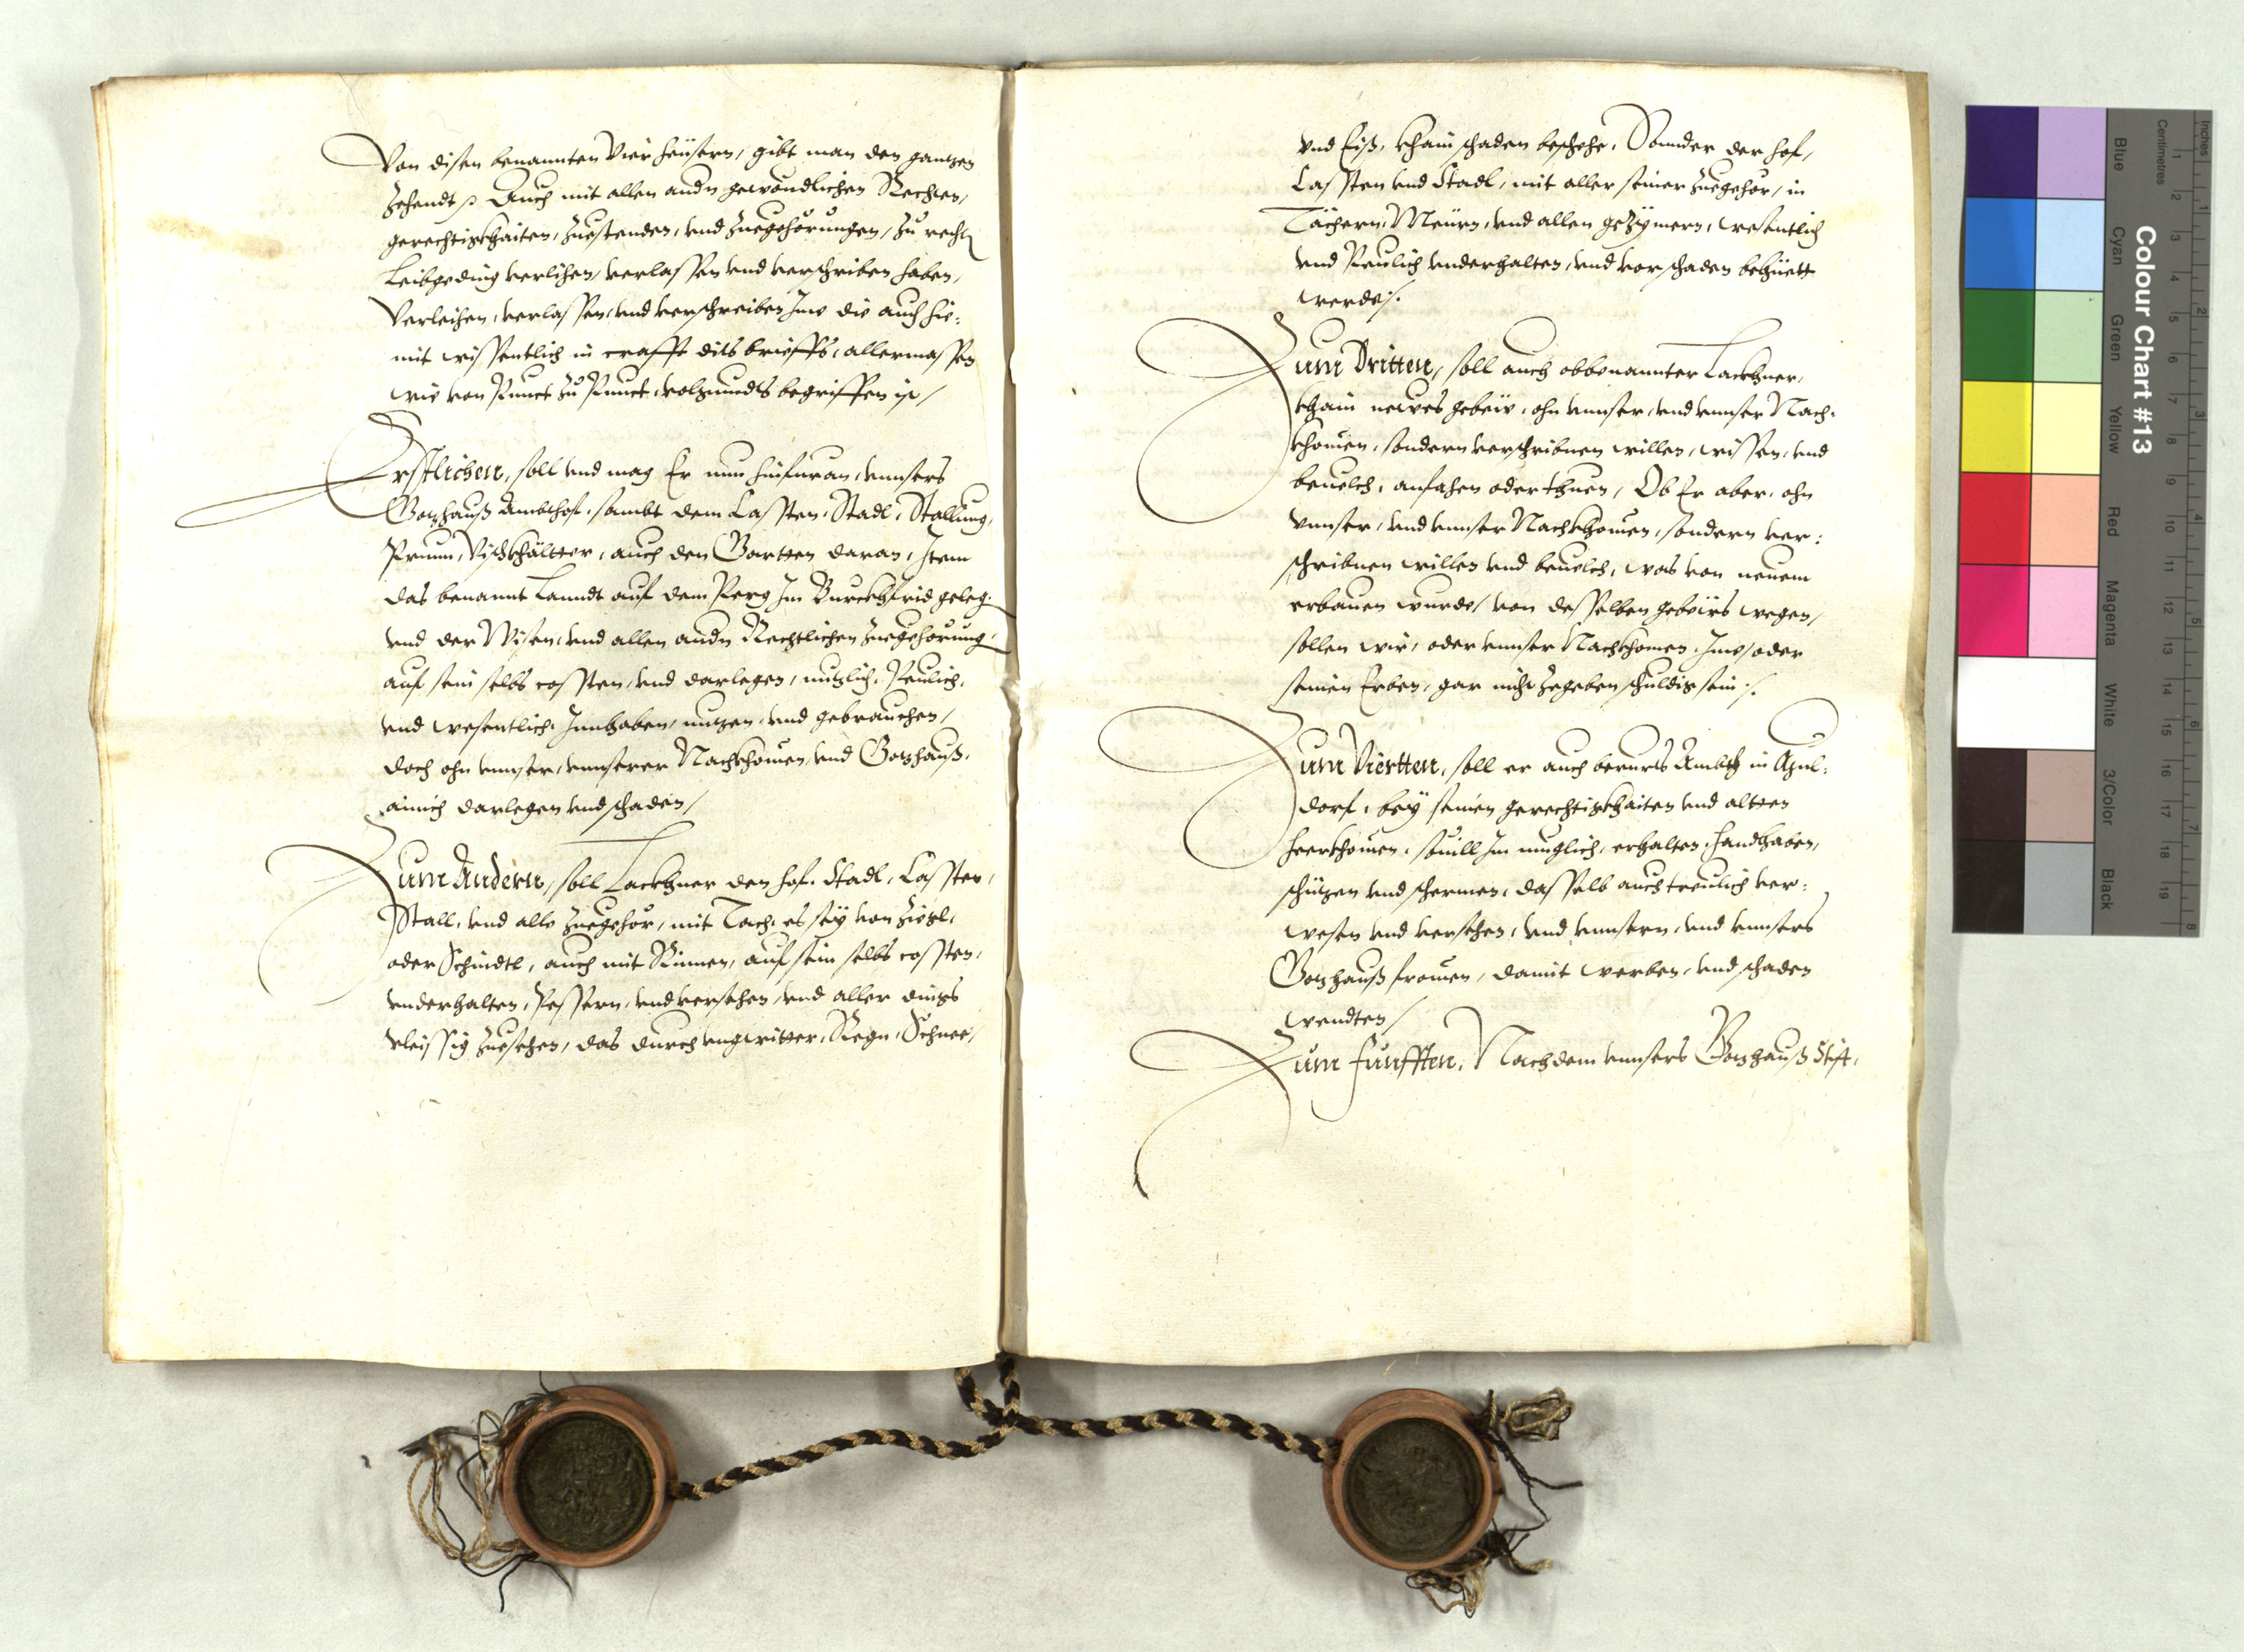 Von disen benannten Vier heüsern, gibt man den gantzen
Zehendt / Auch mit allen andn gewöndlichen Rechten,
gerechtigkhaiten, Zuestenden, vnd Zuegehörungen, Zu recht
Leibgeding verlihen, verlassen vnd verschriben haben,
Verleihen, verlassen, vnd verschreiben Jme die auch hie-
mit wissentlich in crafft dits brieffs, allermassen
wie von Punct Zu Punct, volgunndts begriffen ist /
Erstlichen, soll vnd mag Er nun hinfuran, vnnsers
Gotzhauß Ambthof, sambt dem Casten, Stadl, Stallung,
Prunn, Vischhälter, auch den Gartten daran, Jtem
das benannt Lanndt auf dem Perg Jm Burckhfrid geleg
vnd der Wisen, vnd allen andn Rechtlichen Zuegehörung
auf sein selbs cossten, vnd darlegen, nutzlich, Peulich,
vnd wesentlich Jnnhaben, nutzen, vnd gebrauchen,
doch ohn vnnser, vnnserer Nachkhomen, vnd Gotzhauß,
ainich darlegen vnd schaden /
Zum Andern, soll Lackhner den hof, Stadl, Cassten,
Stall, vnd alle Zuegehör, mit Tach, es seÿ von Ziegl,
oder Schindtl, auch mit Rinnen, auf sein selbs cossten,
vnderhalten, Pessern, vnd versehen, vnd aller dings
vleissig Zuesehen, das durch vngwitter, Regn, Schnee,
vnd Eiß, khain schaden beschehe, Sonnder der hof,
Cassten vnd Stadl, mit aller seiner Zuegehör, in
Tächern, Meürn, vnd allen geZÿmern, wesentlich
vnd Peulich vnderhalten, vnd vor schaden behüett
werde /.
Zum Dritten, soll auch obbenannter Lackhner,
khain newes gebeiv, ohn vnnser, vnd vnnser Nach-
khomen, sondern verschribnen willen, wissen, vnd
beuelch, anfahen oder thuen, Ob Er aber, ohn
vnnser, vnd vnnser Nachkhomen, sondern ver:
schribnen willen vnd beuelch, was von neuem
erbauen wurde, von desselben gebeiv̈s wegen,
sollen wir, oder vnnser Nachkhomen, Jme, oder
seinen Erben, gar nicht Zegeben schuldig sein /.
Zum Viertten, soll er auch berürts Ambt in
dorf, beÿ seinen gerechtigkhaiten vnd altten
heerkhomen, souill Jm muglich, erhalten, handthaben,
schützen vnd schermen, dasselb auch treulich ver:
wesen vnd versehen, vnd vnnsern, vnd vnnsers
Gotzhauß fromen, damit werben, vnd schaden
wendten /
Zum fünfften, Nachdem vnnsers Gotzhauß Stift,
Colour Chart #13
Blue
Cyan
Green
Yellow
Red
Magenta
White
3/Color
Black
Centimetres
1 2 3 4 5 6 7 8 9 10 11 12 13 14 15 16 17 18 19
Inches
1 2 3 4 5 6 7 8